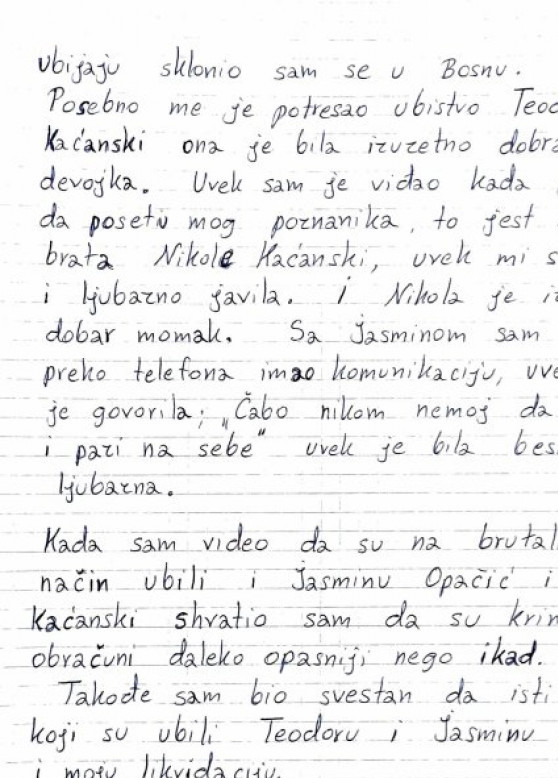 ubijaju sklonio sam se u Bosnu.
Posebno me je potresao ubistvo Teod
Kaćanski ona je bila izuzetno dobra
devojka. Uvek sam je viđao kada
da poseti mog poznanika, to jest
brata Nikole Kaćanski, uvek mi s
i ljubazno javila. i Nikola je iz
dobar momak. Sa Jasminom sam
preko telefona imao komunikaciju, uve
je govorila; „Čabo nikom nemoj da
i pazi na sebe“ uvek je bila bes
ljubazna.
Kada sam video da su na brutal
način ubili i Jasminu Opačić i
Kaćanski shvatio sam da su krim
obračuni daleko opasniji nego ikad.
Takođe sam bio svestan da isti
koji su ubili Teodoru i Jasminu
i moju likvidaciju.